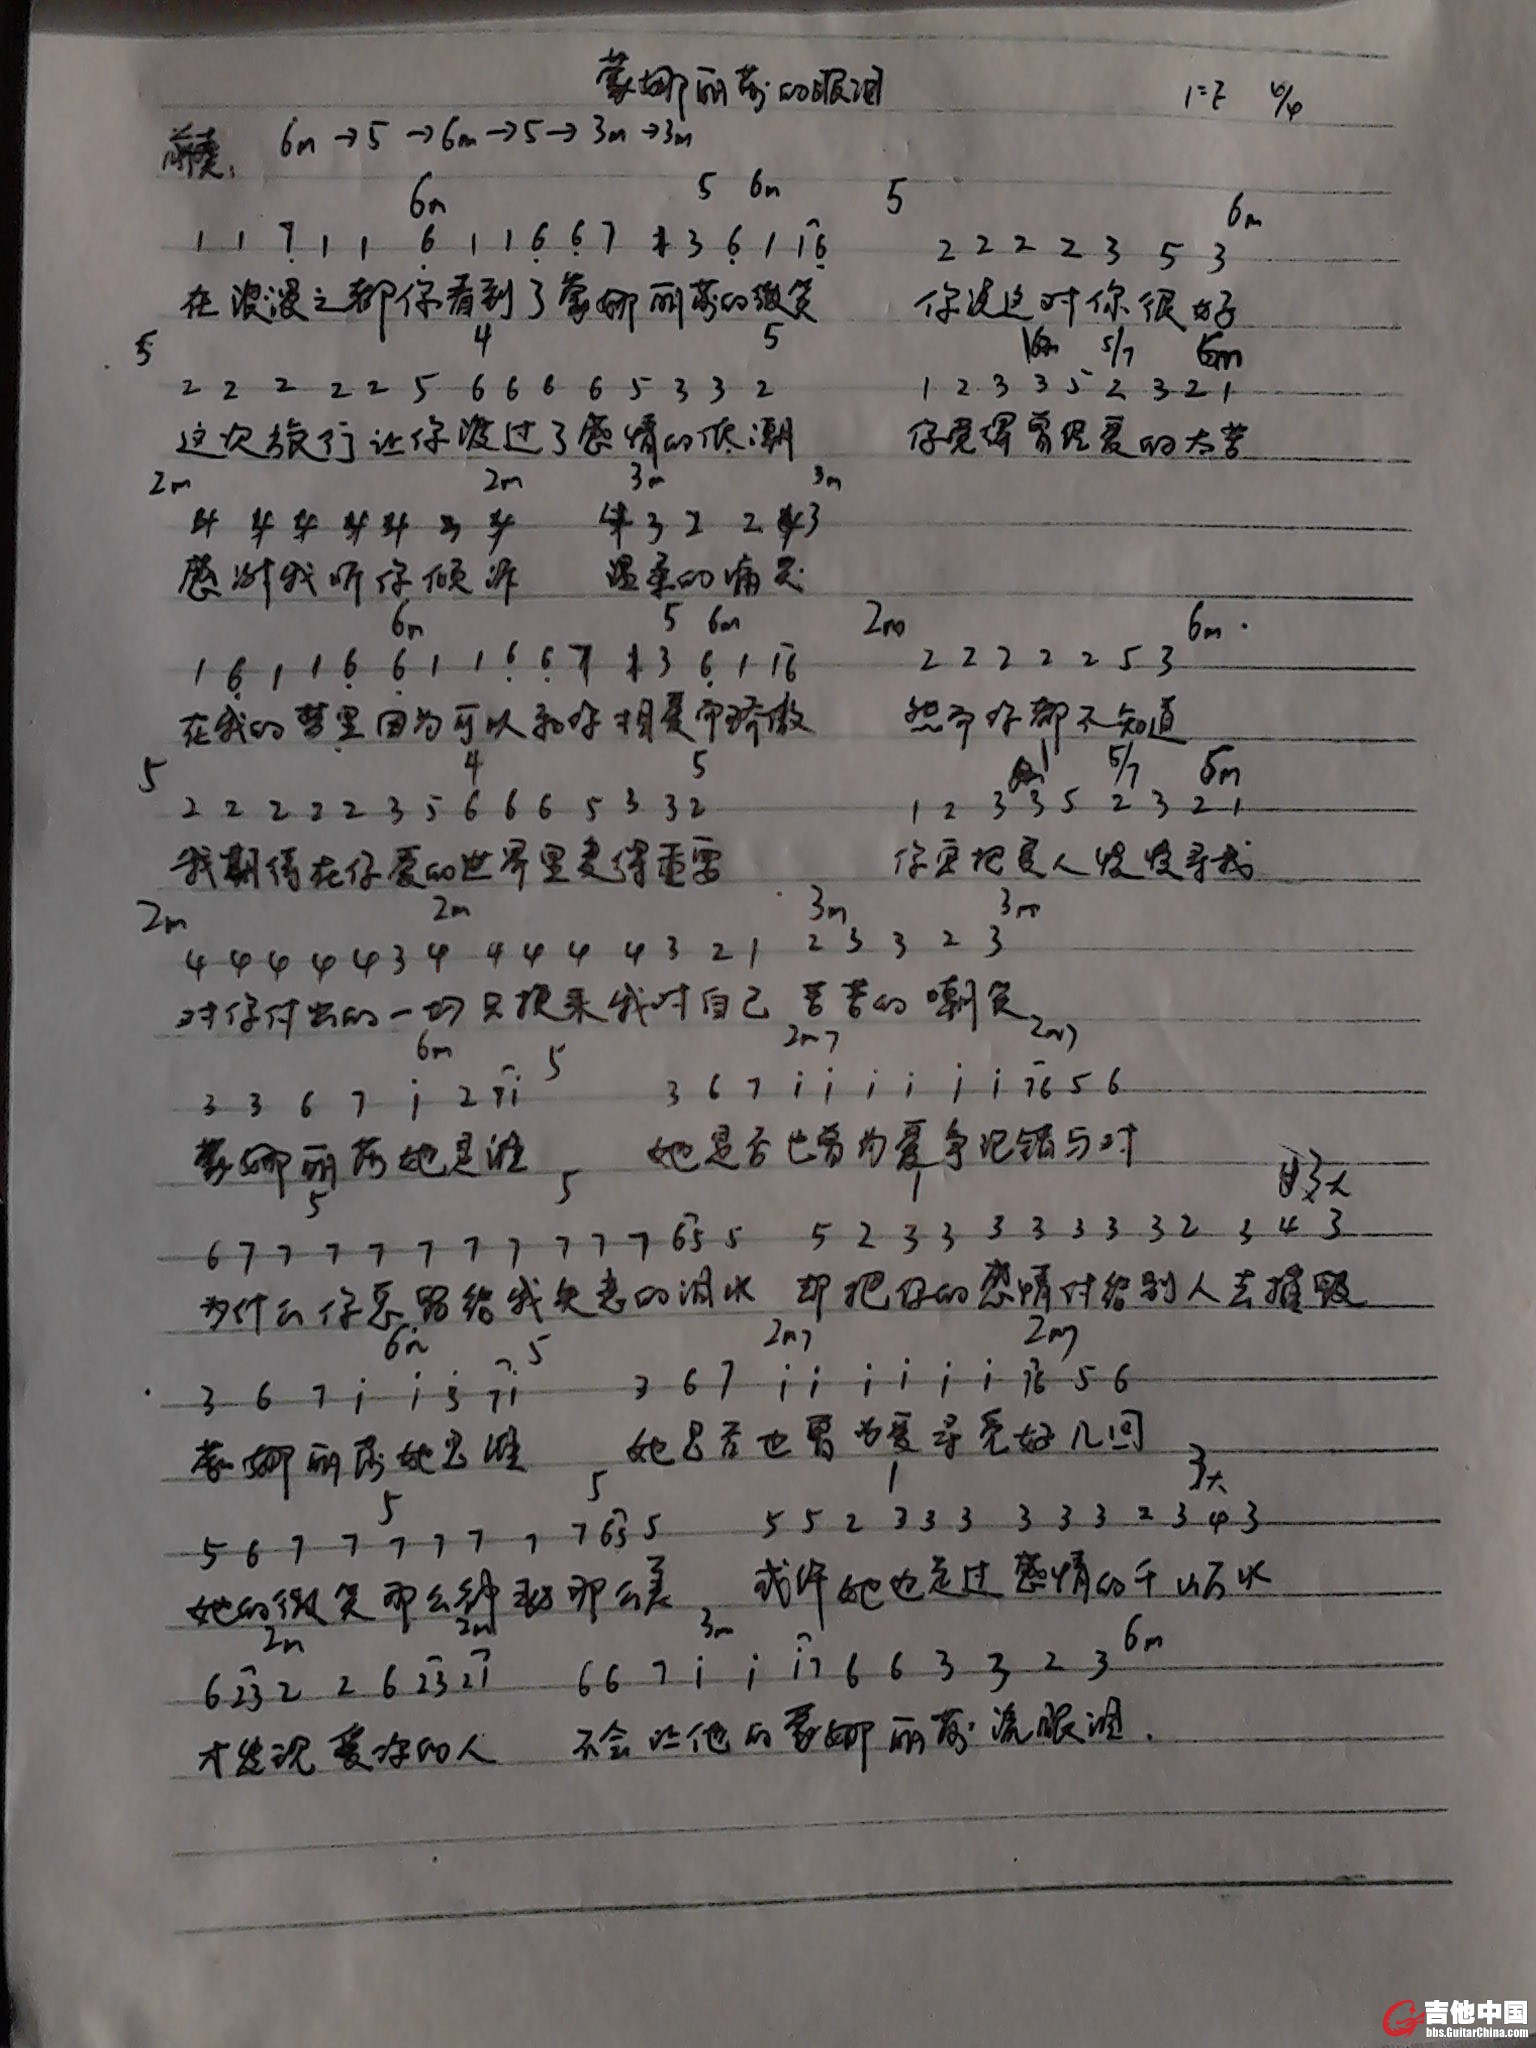 蒙娜丽莎的眼泪
1=E 4/4
前奏: 6m→5→6m→5→3m→3m
6m 5 6m 5 6m
1 1 7 1 1 6 1 1 6 6 7 3 6 1 1 6 2 2 2 2 3 5 3
在浪漫之都你看到了蒙娜丽莎的微笑 你说这对你很好
5 4 5 5/7 6m
2 2 2 2 2 5 6 6 6 6 5 3 3 2 1 2 3 3 5 2 3 2 1
这次旅行让你渡过了感情的低潮 你觉得曾经爱的太苦
2m 2m 3m 3m
4 4 4 4 4 3 4 4 3 2 2 3
感谢我听你倾诉 温柔的痛哭
6m 5 6m 2m 6m
1 6 1 1 6 6 1 1 6 6 7 3 6 1 1 6 2 2 2 2 2 5 3
在我的梦里因为可以和你相爱而骄傲 然而你都不知道
5 4 5 1 5/7 6m
2 2 2 2 2 3 5 6 6 6 5 3 3 2 1 2 3 3 5 2 3 2 1
我期待在你爱的世界里变得重要 你宁把爱人慢慢寻找
2m 2m 3m 3m
4 4 4 4 4 3 4 4 4 4 4 3 2 1 2 3 3 2 3
对你付出的一切只换来我对自己 苦苦的嘲笑
6m 5 2m7 2m7
3 3 6 7 i 2 7 i 3 6 7 i i i i i i 7 6 5 6
蒙娜丽莎她是谁 她是否也曾为爱争论错与对
5 5 1 3大
6 7 7 7 7 7 7 7 7 7 7 6 5 5 5 2 3 3 3 3 3 3 3 2 3 4 3
为什么你总留给我失恋的泪水 却把你的感情付给别人去摧毁
6m 5 2m7 2m7
3 6 7 i i 3 7 i 3 6 7 i i i i i i 7 6 5 6
蒙娜丽莎她是谁 她是否也曾为爱寻觅好几回
5 5 1 3大
5 6 7 7 7 7 7 7 7 6 5 5 5 5 2 3 3 3 3 3 3 2 3 4 3
她的微笑那么神秘那么美 或许她也走过感情的千山万水
2m 2m 3m 6m
6 2 3 2 2 6 2 3 2 1 6 6 7 i i i 7 6 6 3 3 2 3
才发现爱你的人 不会让他的蒙娜丽莎流眼泪.
吉他中国
bbs.GuitarChina.com